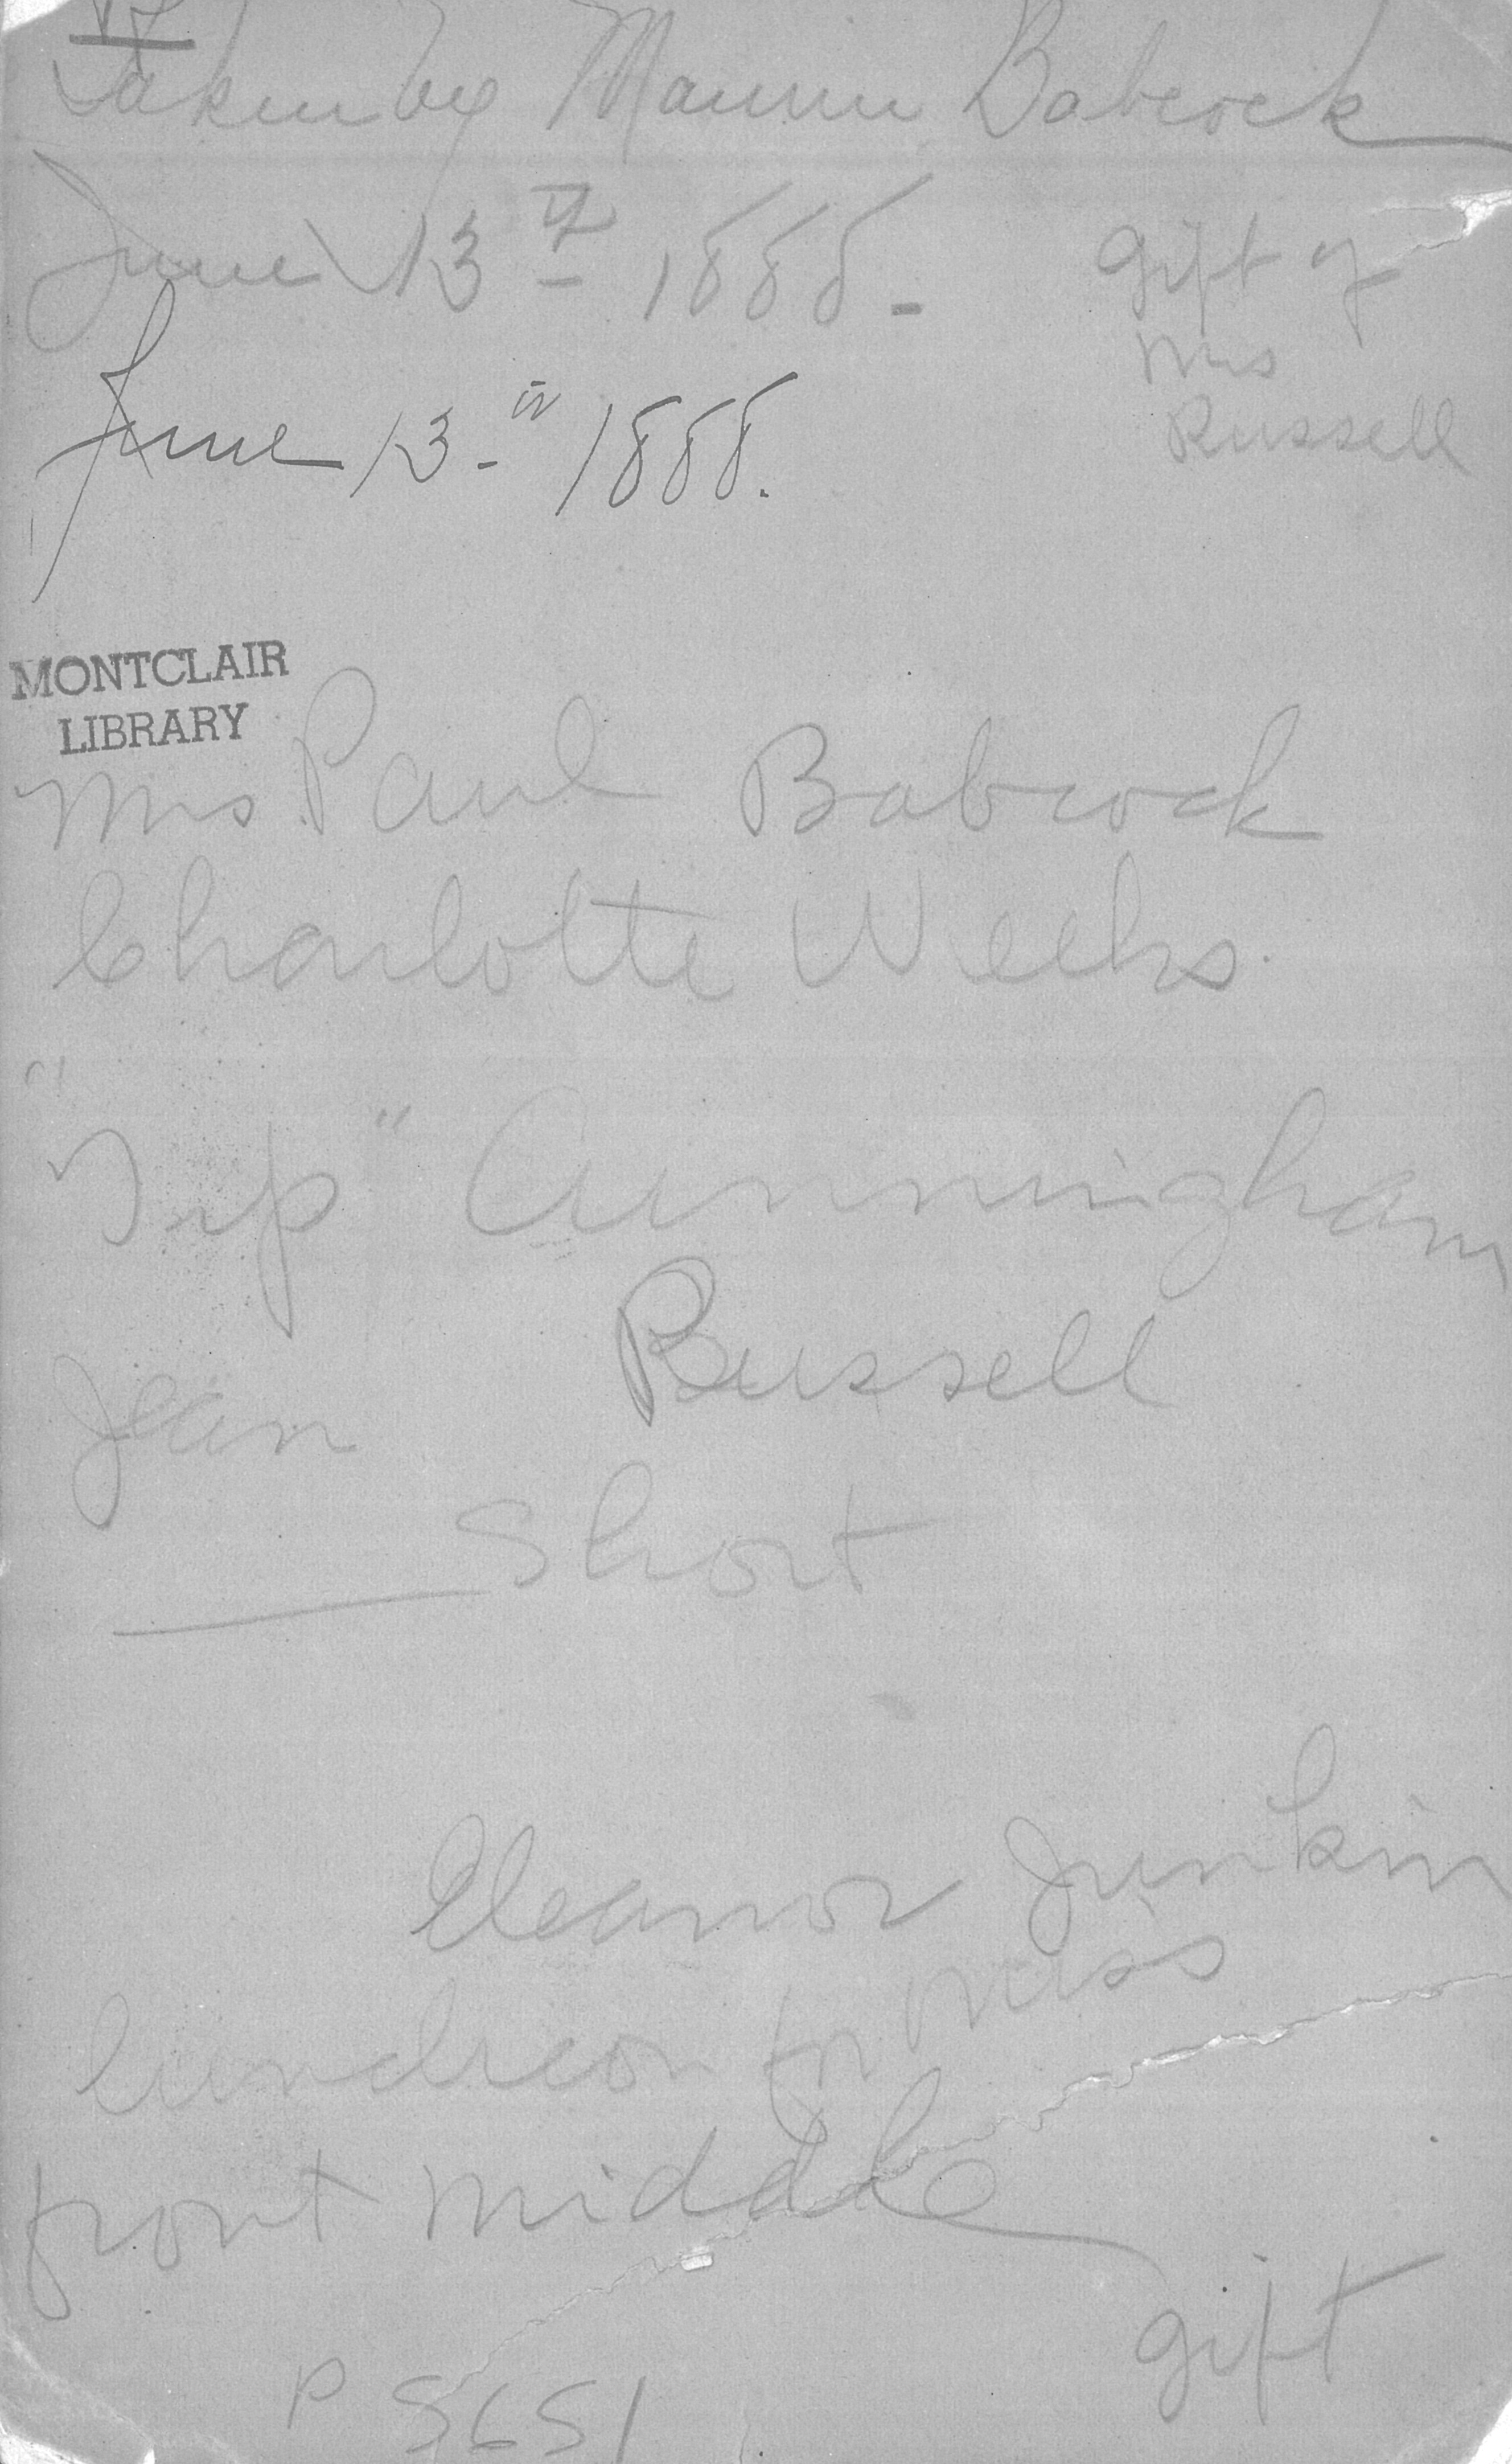 Taken by Babcock
June 13th 1888 -
gift of
Mrs
Russell
June 13-th 1888.
MONTCLAIR
LIBRARY
Mrs. Paul Babcock
Charlotte Weeks.
" " Cunningham
Russell
Jean
Short
Eleanor Junkin
luncheon for Miss
front middle
gift
P 5651